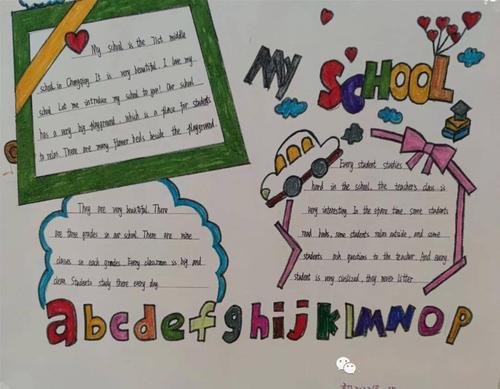 My SCHOOL
My school is the 71st middle
school in Chongqing. It is very beautiful. I love my
school. Let me introduce my school to you! Our school
has a very big playground, which is a place for students
to relax. There are many flower beds beside the playground.
They are very beautiful. There
are three grades in our school. There are nine
classes in each grades. Every classroom is big and
clean. Students study there every day.
Every student studies
hard in the school, the teacher's class is
very interesting. In the spare time, some students
read books, some students relax outside, and some
students ask questions to the teacher. And every
student is very civilized, they never litter
abcdefghijklMNOP